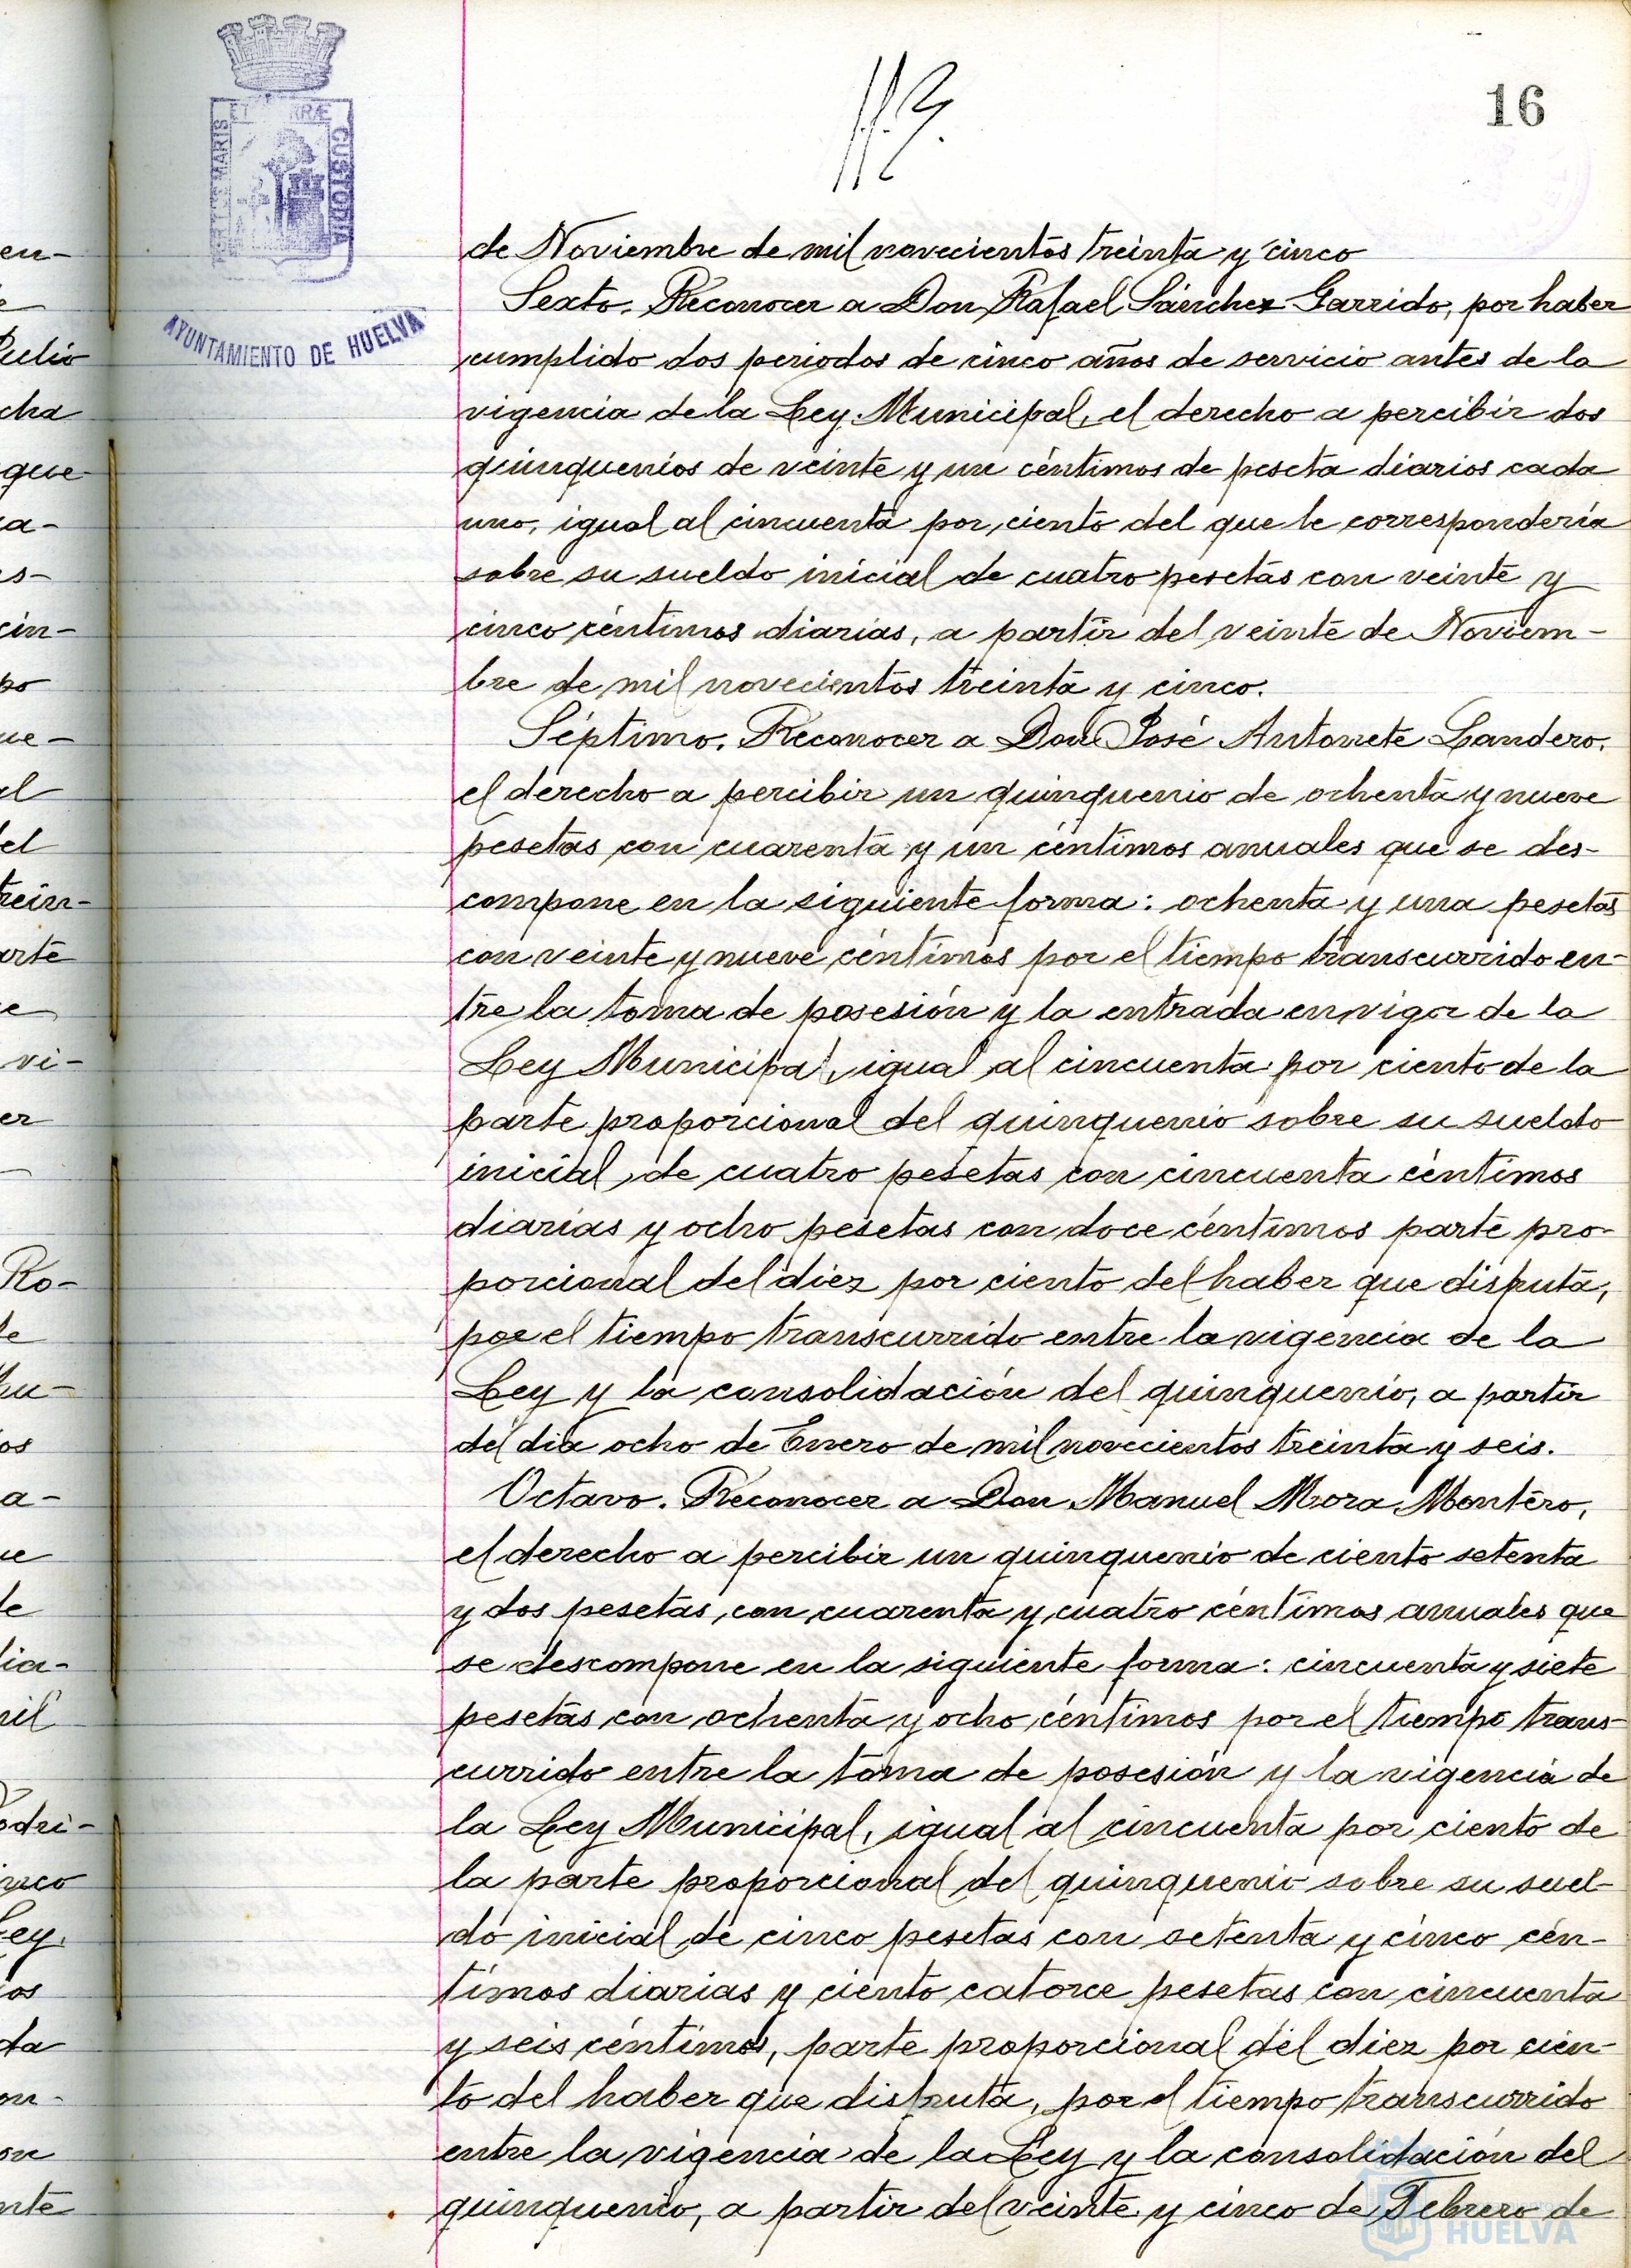 16
AYUNTAMIENTO DE HUELVA
de Noviembre de mil novecientos treinta y cinco
Sexto. Reconocer a Don Rafael Sánchez Garrido, por haber
cumplido dos periodos de cinco años de servicio antes de la
vigencia de la Ley Municipal, el derecho a percibir dos
quinquenios de veinte y un céntimos de peseta diarios cada
uno, igual al cincuenta por ciento del que le correspondería
sobre su sueldo inicial de cuatro pesetas con veinte y
cinco céntimos diarias, a partir del veinte de Noviem-
bre de mil novecientos treinta y cinco.
Séptimo. Reconocer a Don José Antonete Landero,
el derecho a percibir un quinquenio de ochenta y nueve
pesetas con cuarenta y un céntimos anuales que se des-
compone en la siguiente forma: ochenta y una pesetas
con veinte y nueve céntimos por el tiempo transcurrido en-
tre la toma de posesión y la entrada en vigor de la
Ley Municipal, igual al cincuenta por ciento de la
parte proporcional del quinquenio sobre su sueldo
inicial, de cuatro pesetas con cincuenta céntimos
diarias y ocho pesetas con doce céntimos parte pro-
porcional del diez por ciento del haber que disfruta,
por el tiempo transcurrido entre la vigencia de la
Ley y la consolidación del quinquenio, a partir
del dia ocho de Enero de mil novecientos treinta y seis.
Octavo. Reconocer a Don Manuel Mora Montero,
el derecho a percibir un quinquenio de ciento setenta
y dos pesetas, con cuarenta y cuatro céntimos anuales que
se descompone en la siguiente forma: cincuenta y siete
pesetas con ochenta y ocho céntimos por el tiempo trans-
currido entre la toma de posesión y la vigencia de
la Ley Municipal, igual al cincuenta por ciento de
la parte proporcional del quinquenio sobre su suel-
do inicial, de cinco pesetas con setenta y cinco cén-
timos diarias y ciento catorce pesetas con cincuenta
y seis céntimos, parte proporcional del diez por cien-
to del haber que disfruta, por el tiempo transcurrido
entre la vigencia de la Ley y la consolidación del
quinquenio, a partir del veinte y cinco de Febrero de
HUELVA